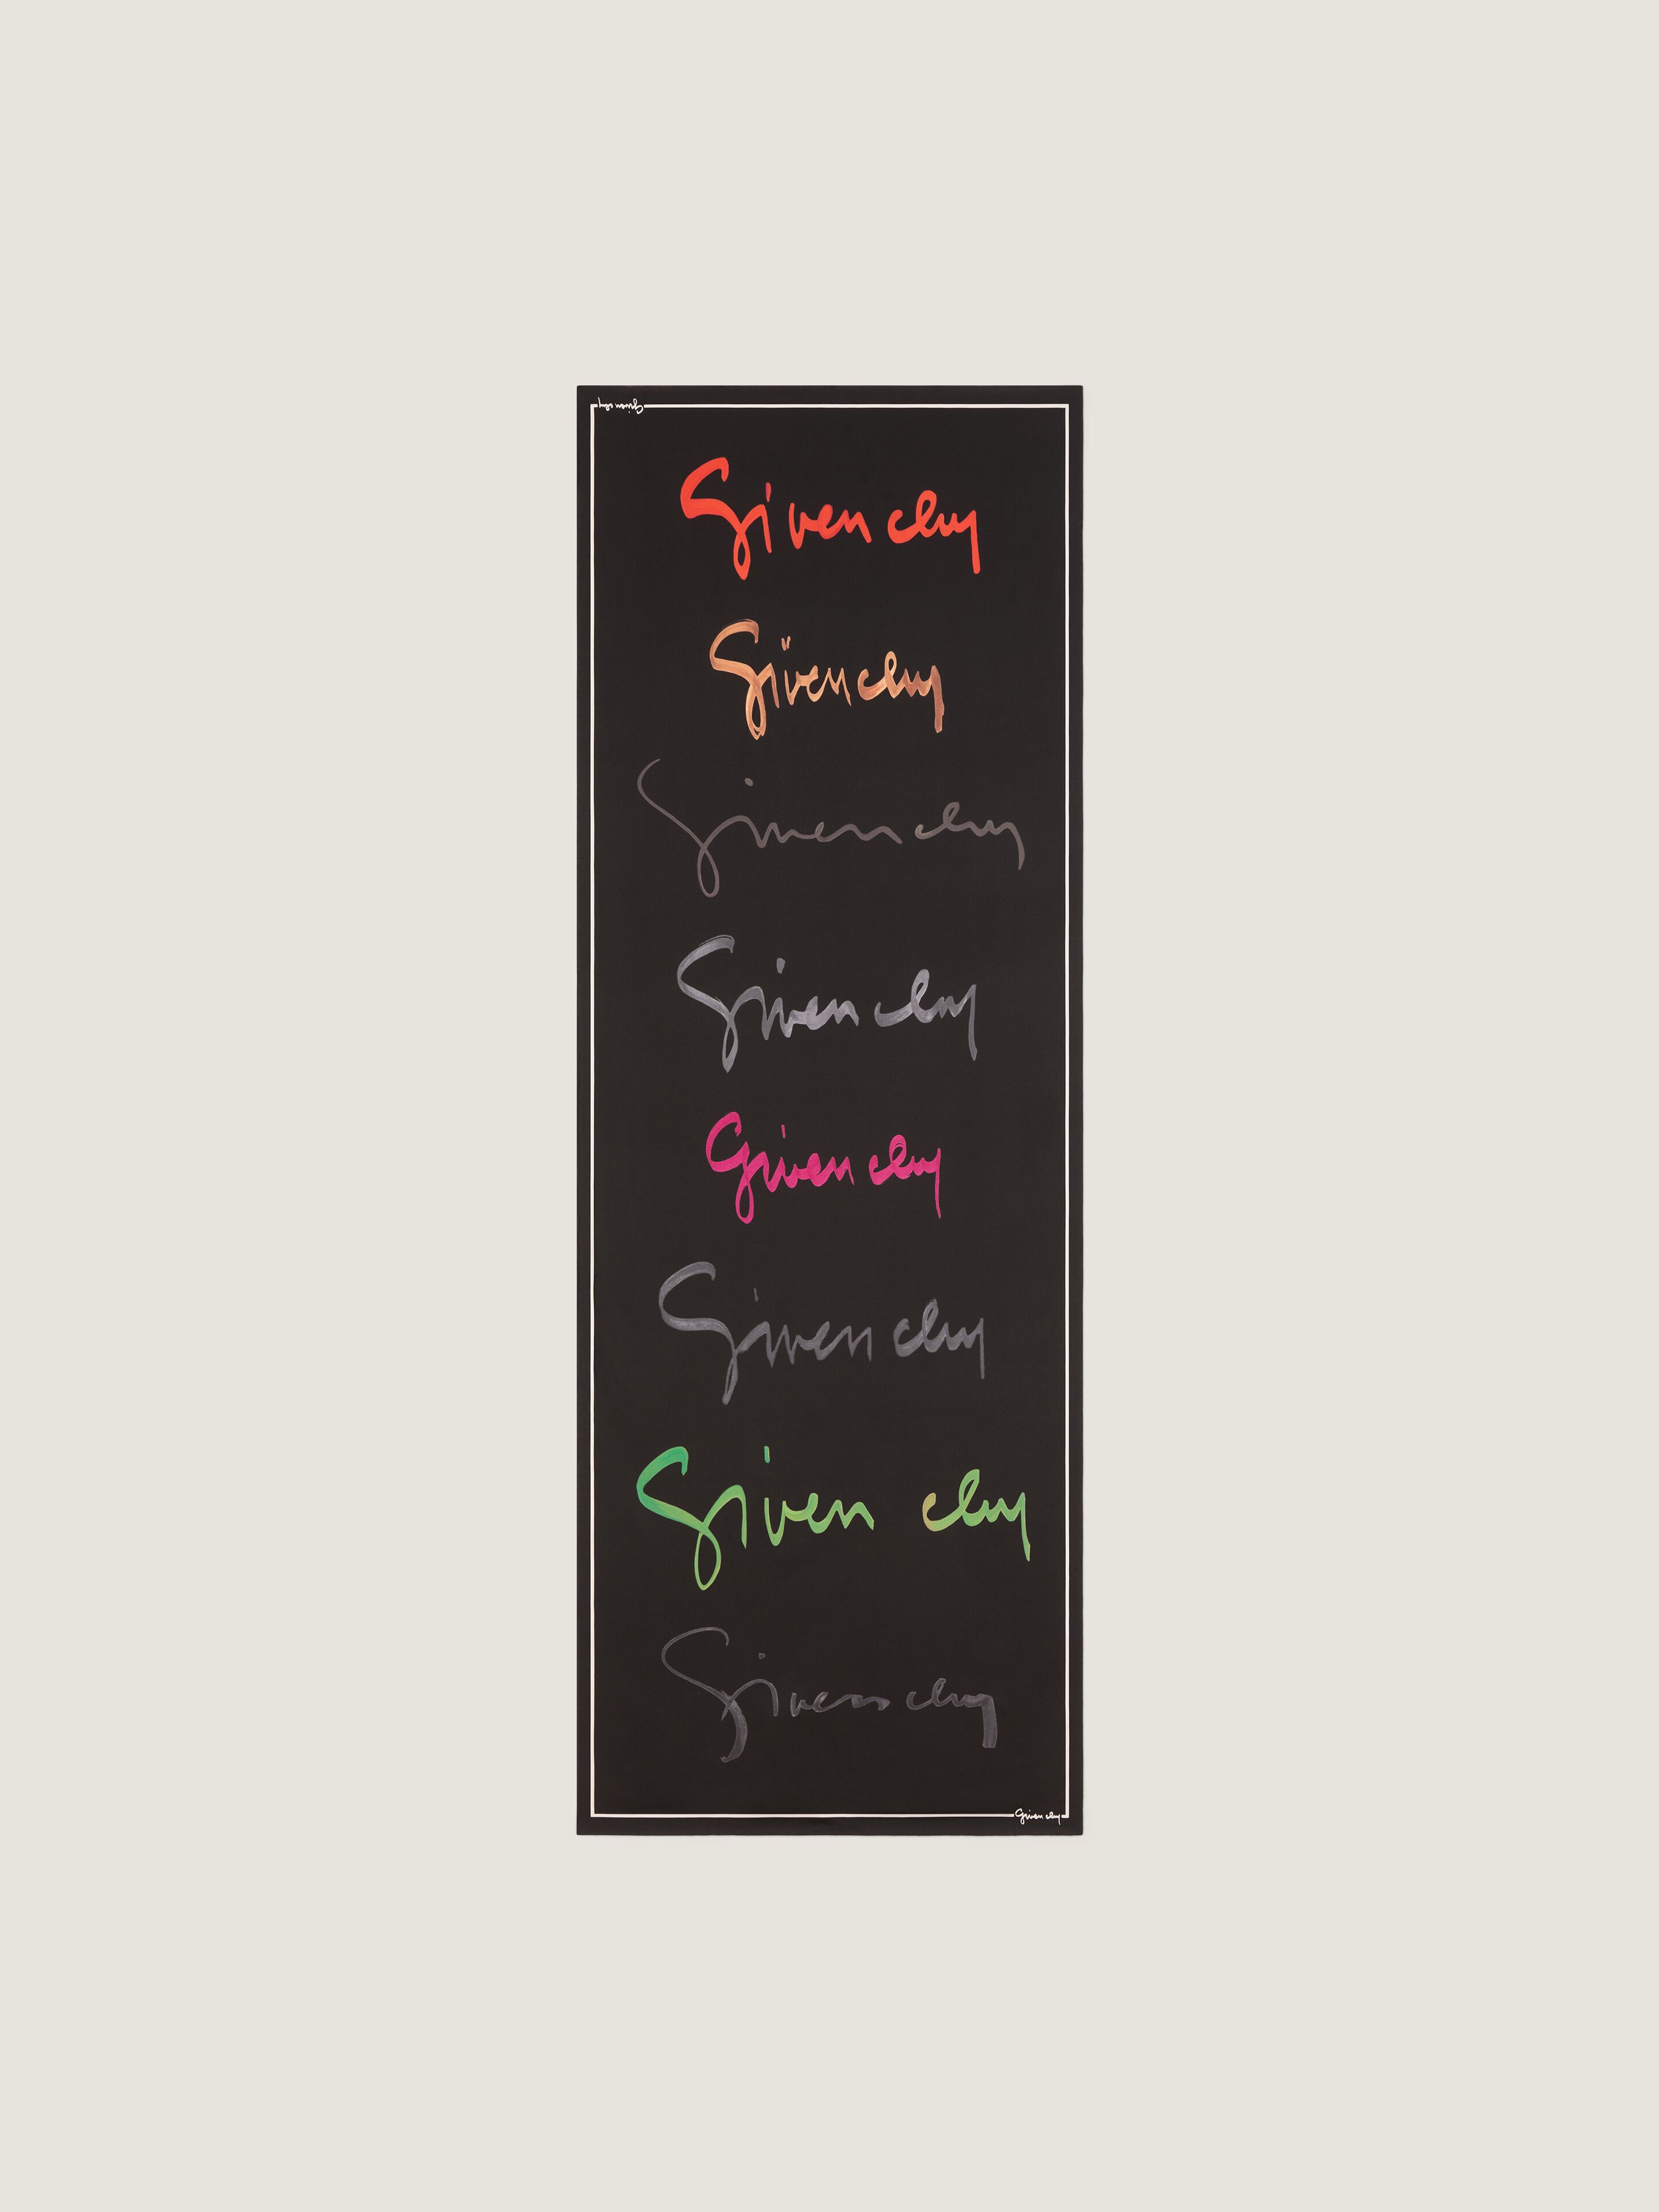 Givenchy
Givenchy
Givenchy
Givenchy
Givenchy
Givenchy
Givenchy
Givenchy
Givenchy
Givenchy